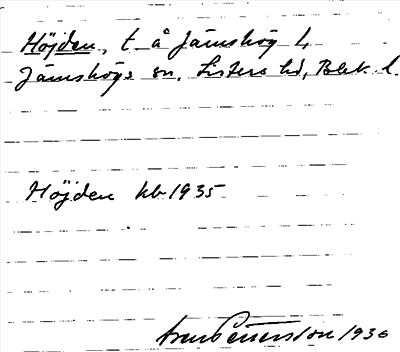 Höjden, t. å Jämshög 4
Jämshögs sn, Listers hd, Blek. l.
Höjden kb 1935
Pettersson 1936